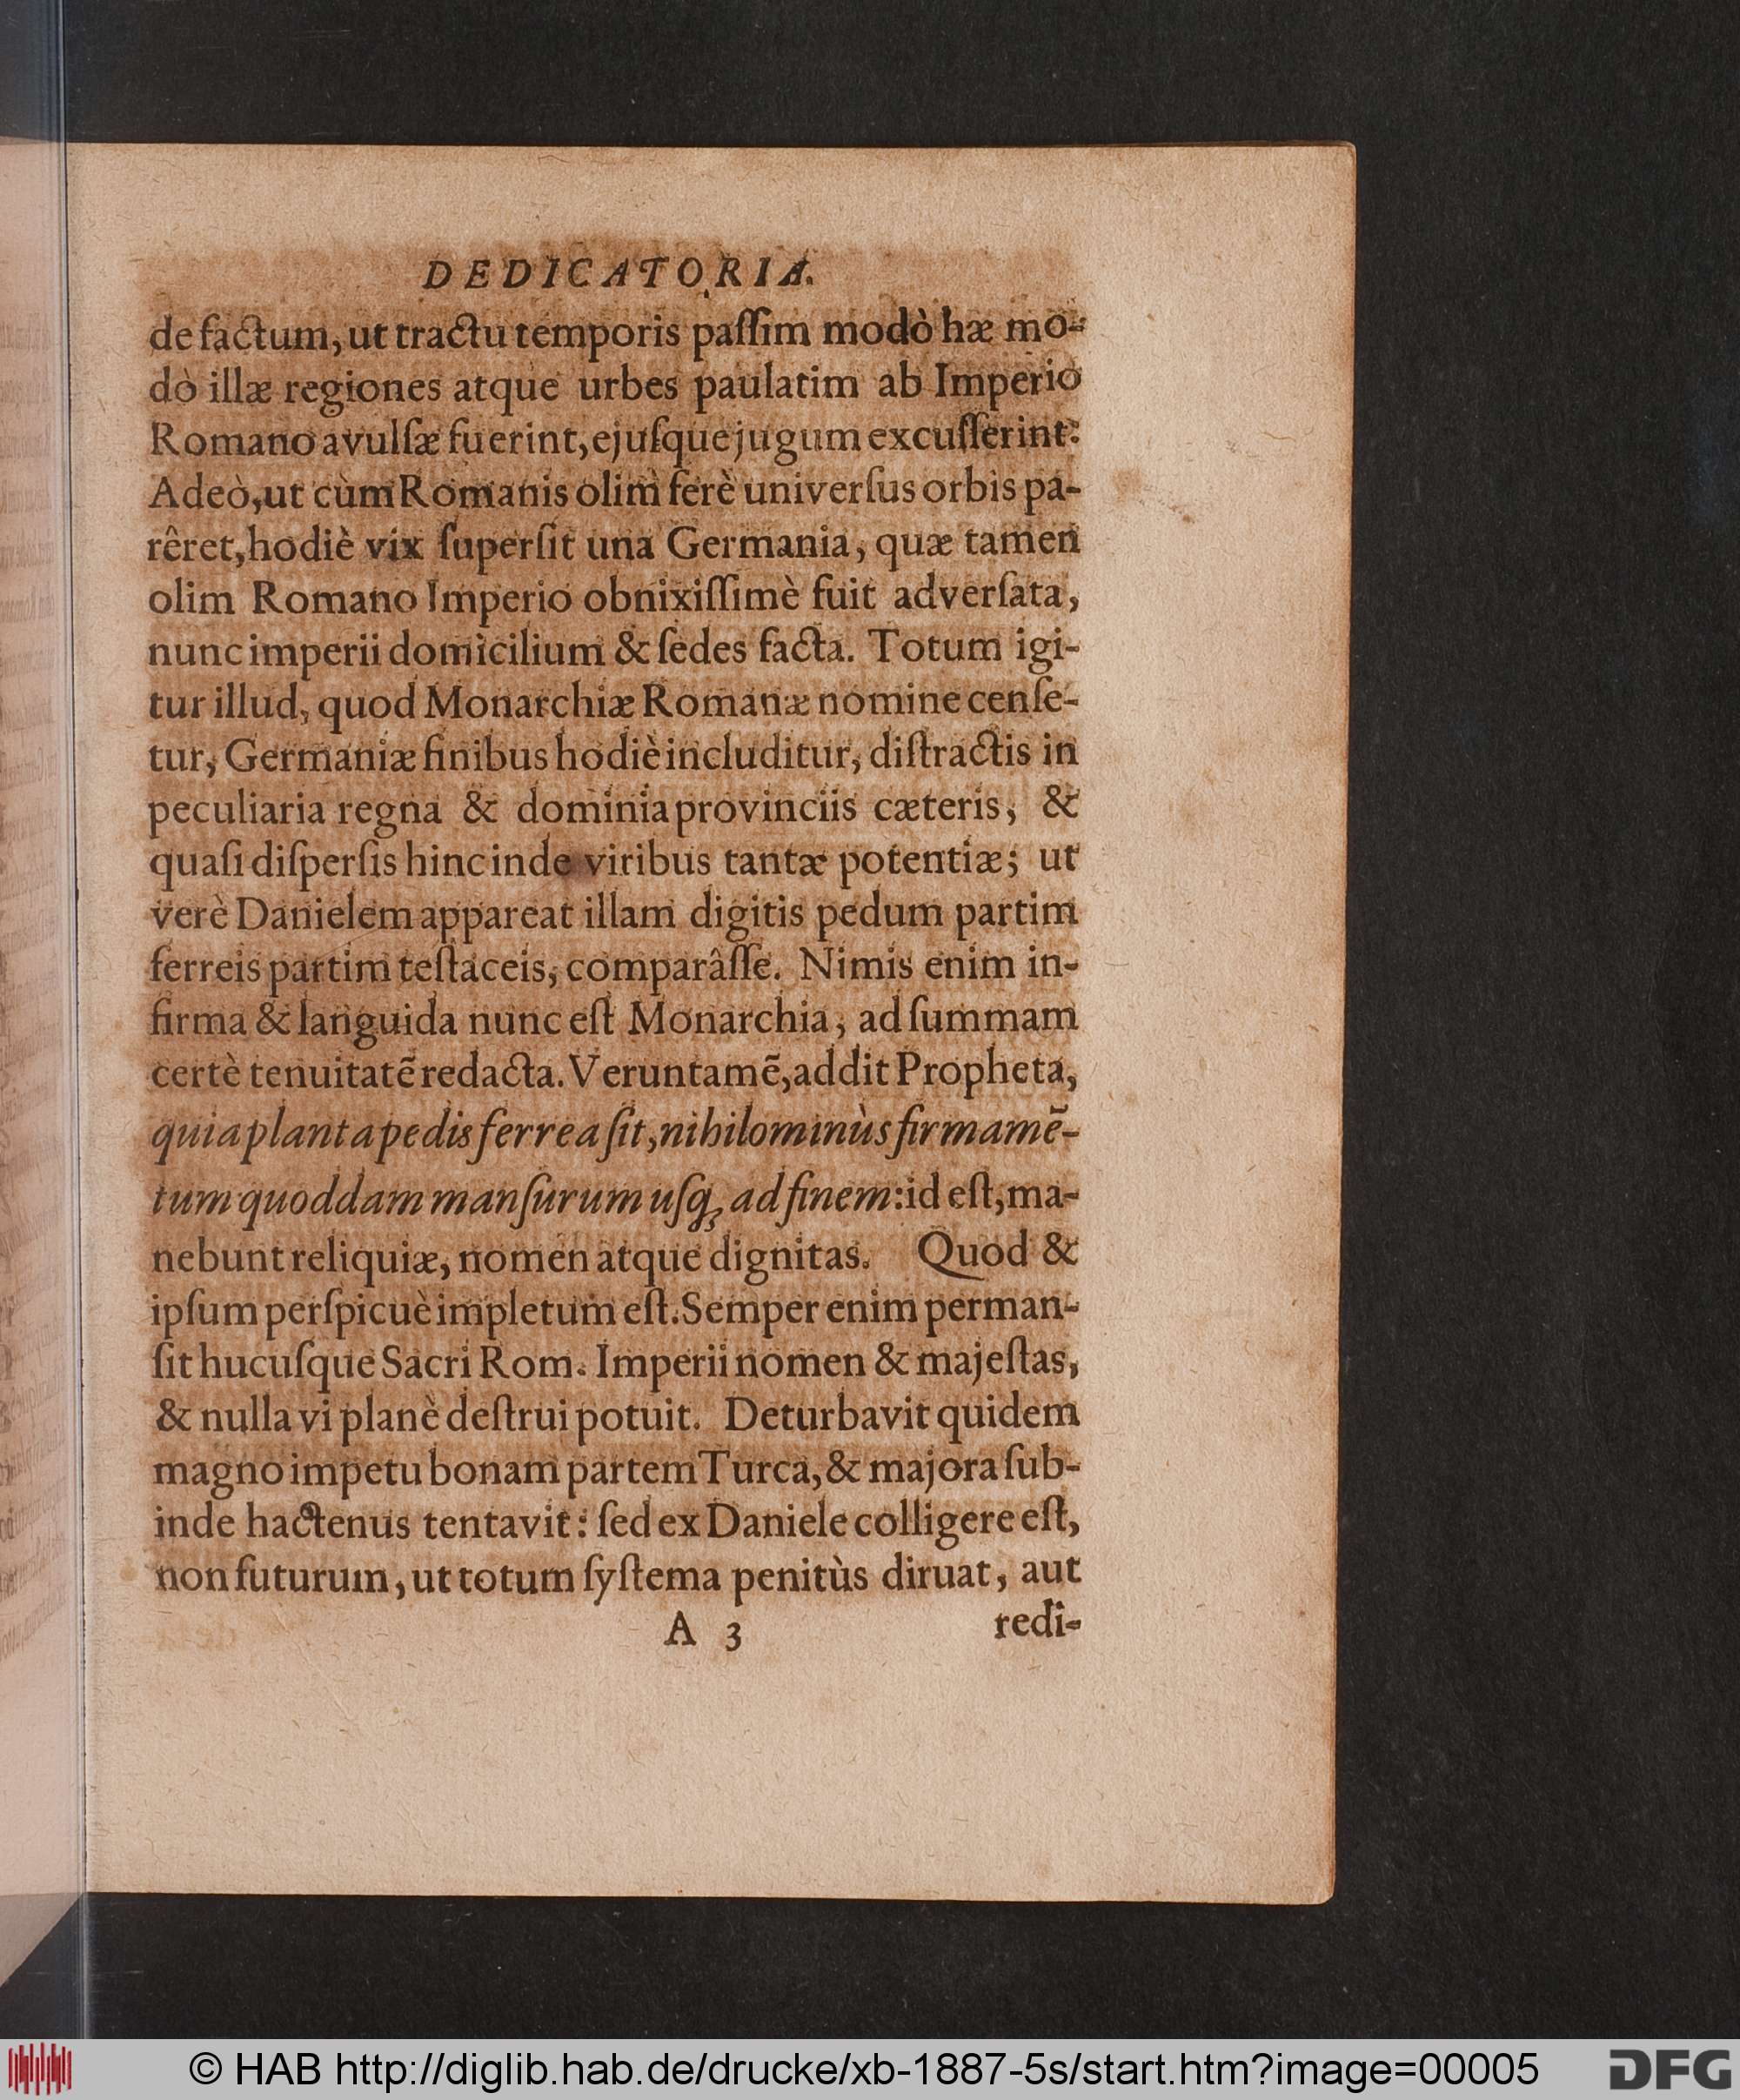 DEDICATORIA.
de factum, ut tractu temporis paſſim modò hæ mo-
dò illæ regiones atque urbes paulatim ab Imperio
Romano avulſæ fuerint, ejuſque jugum excuſſerint:
Adeò, ut cùm Romanis olim ferè univerſus orbis pa-
rêret, hodiè vix ſuperſit una Germania, quæ tamen
olim Romano Imperio obnixiſſimè fuit adverſata,
nunc imperii domicilium & ſedes facta. Totum igi-
tur illud, quod Monarchiæ Romanæ nomine cenſe-
tur, Germaniæ finibus hodiè includitur, diſtractis in
peculiaria regna & dominia provinciis cæteris, &
quaſi diſperſis hinc inde viribus tantæ potentiæ; ut
verè Danielem appareat illam digitis pedum partim
ferreis partim teſtaceis, comparâſſe. Nimis enim in-
firma & languida nunc eſt Monarchia, ad ſummam
certè tenuitatẽ redacta. Veruntamẽ, addit Propheta,
quia planta pedis ferrea ſit, nihilominùs firmamẽ-
tum quoddam manſurum uſq; ad finem: id eſt, ma-
nebunt reliquiæ, nomen atque dignitas. Quod &
ipſum perſpicuè impletum eſt. Semper enim perman-
ſit hucuſque Sacri Rom. Imperii nomen & majeſtas,
& nulla vi planè deſtrui potuit. Deturbavit quidem
magno impetu bonam partem Turca, & majora ſub-
inde hactenus tentavit: ſed ex Daniele colligere eſt,
non futurum, ut totum ſyſtema penitùs diruat, aut
A 3 redi-
© HAB http://diglib.hab.de/drucke/xb-1887-5s/start.htm?image=00005 DFG